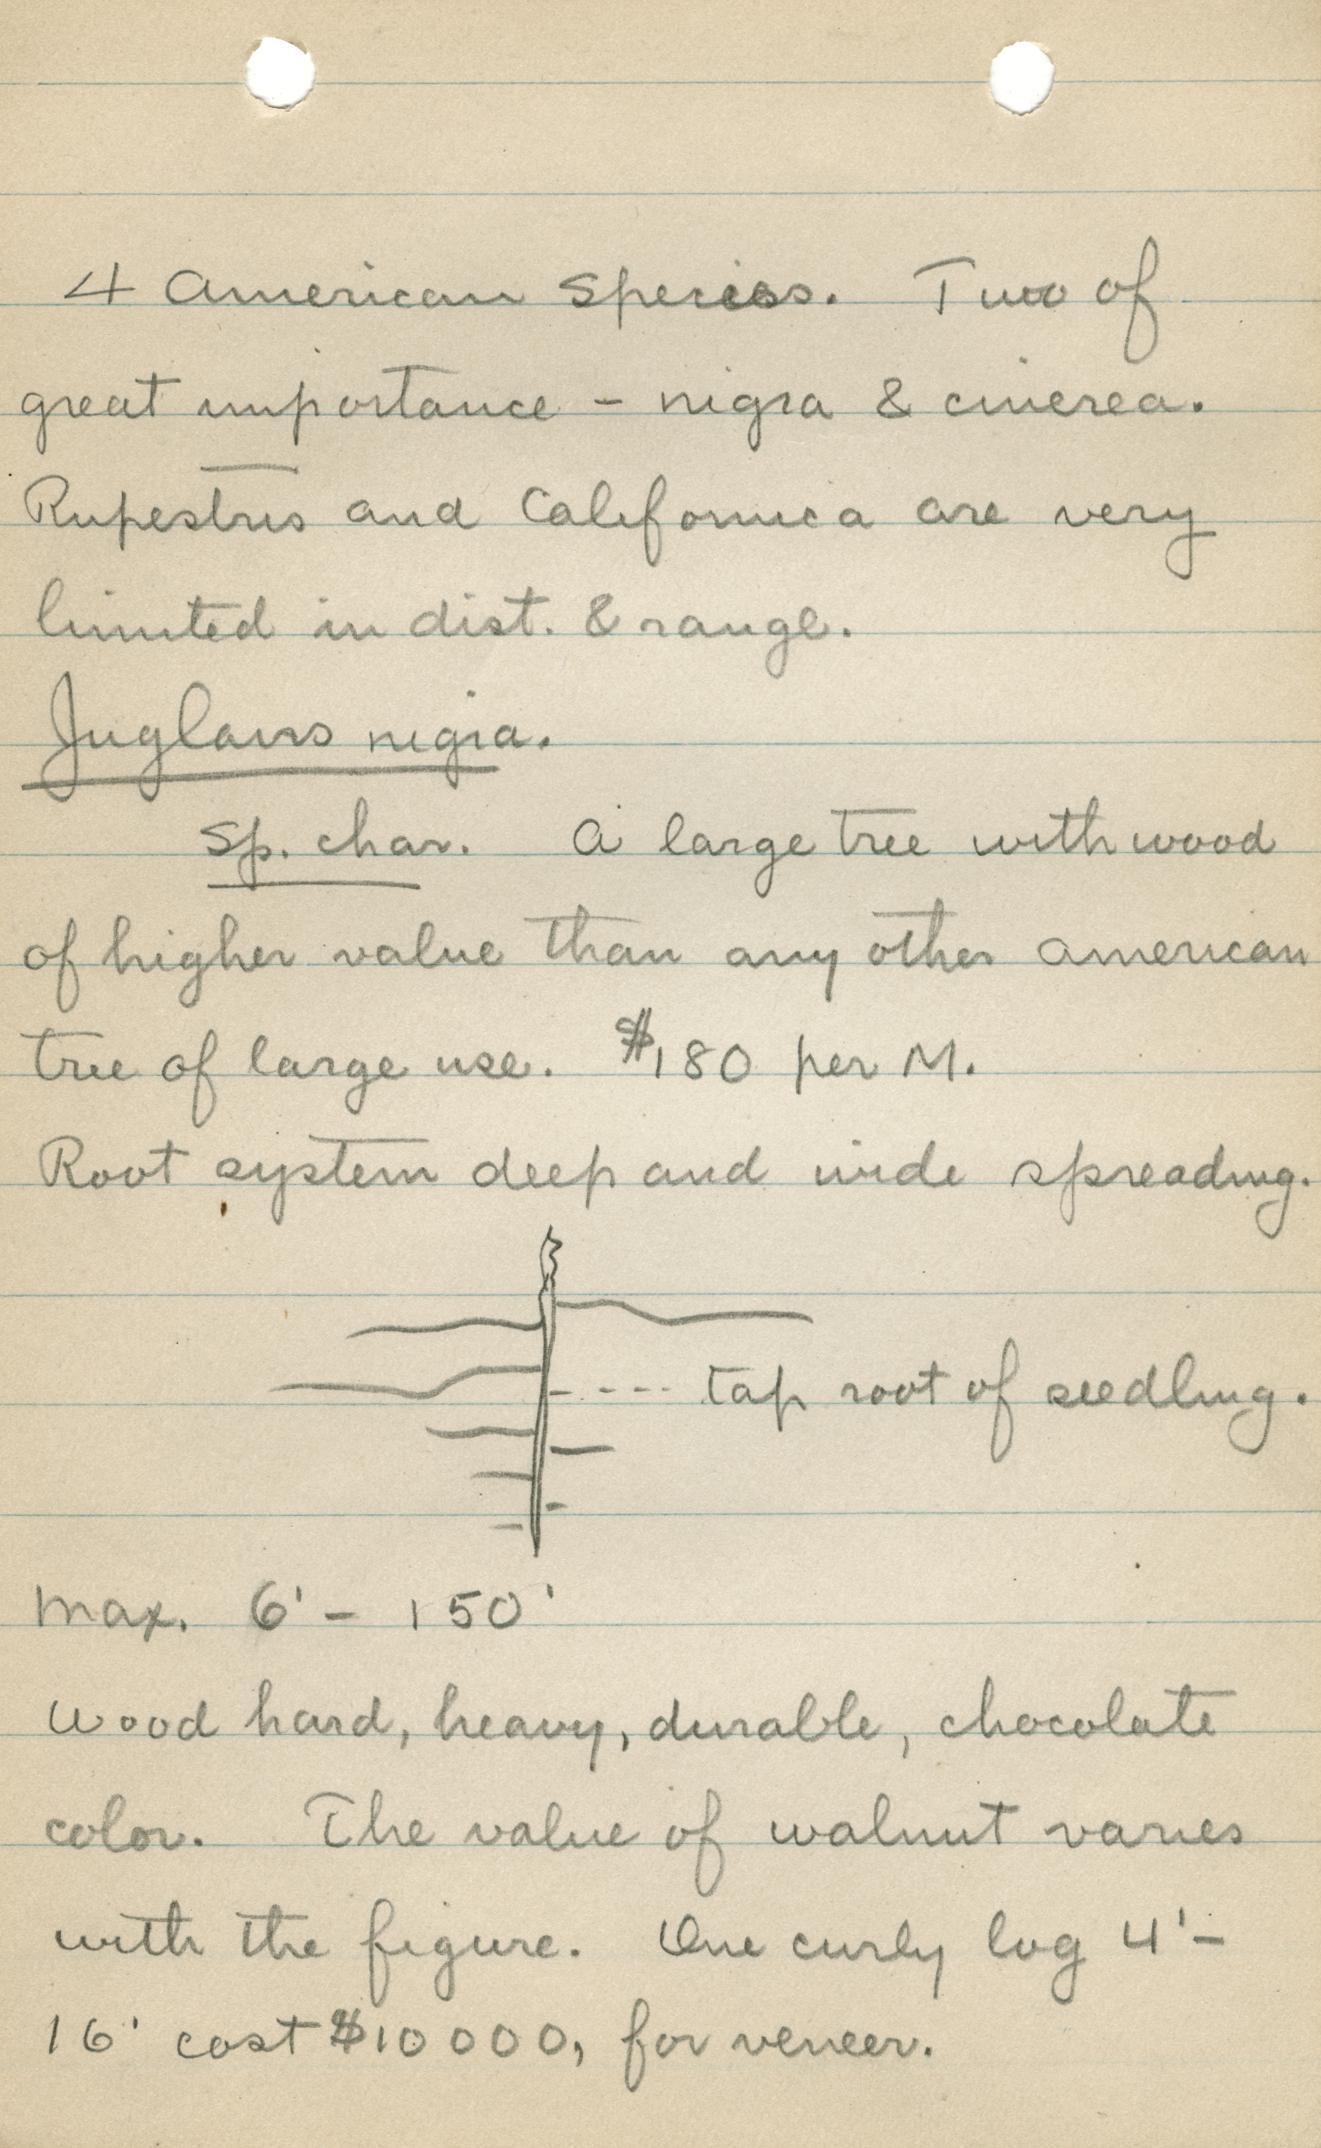 4 American Species. Two of
great importance - nigra & cinerea.
Rupestris and Californica are very
limited in dist. & range.
Juglans nigra.
Sp. char. A large tree with wood
of higher value than any other American
tree of large use. $180 per M.
Root system deep and wide spreading.
---- tap root of seedling.
Max. 6' - 150'
Wood hard, heavy, durable, chocolate
color. The value of walnut varies
with the figure. One curly log 4'-
16' cost $10000, for veneer.